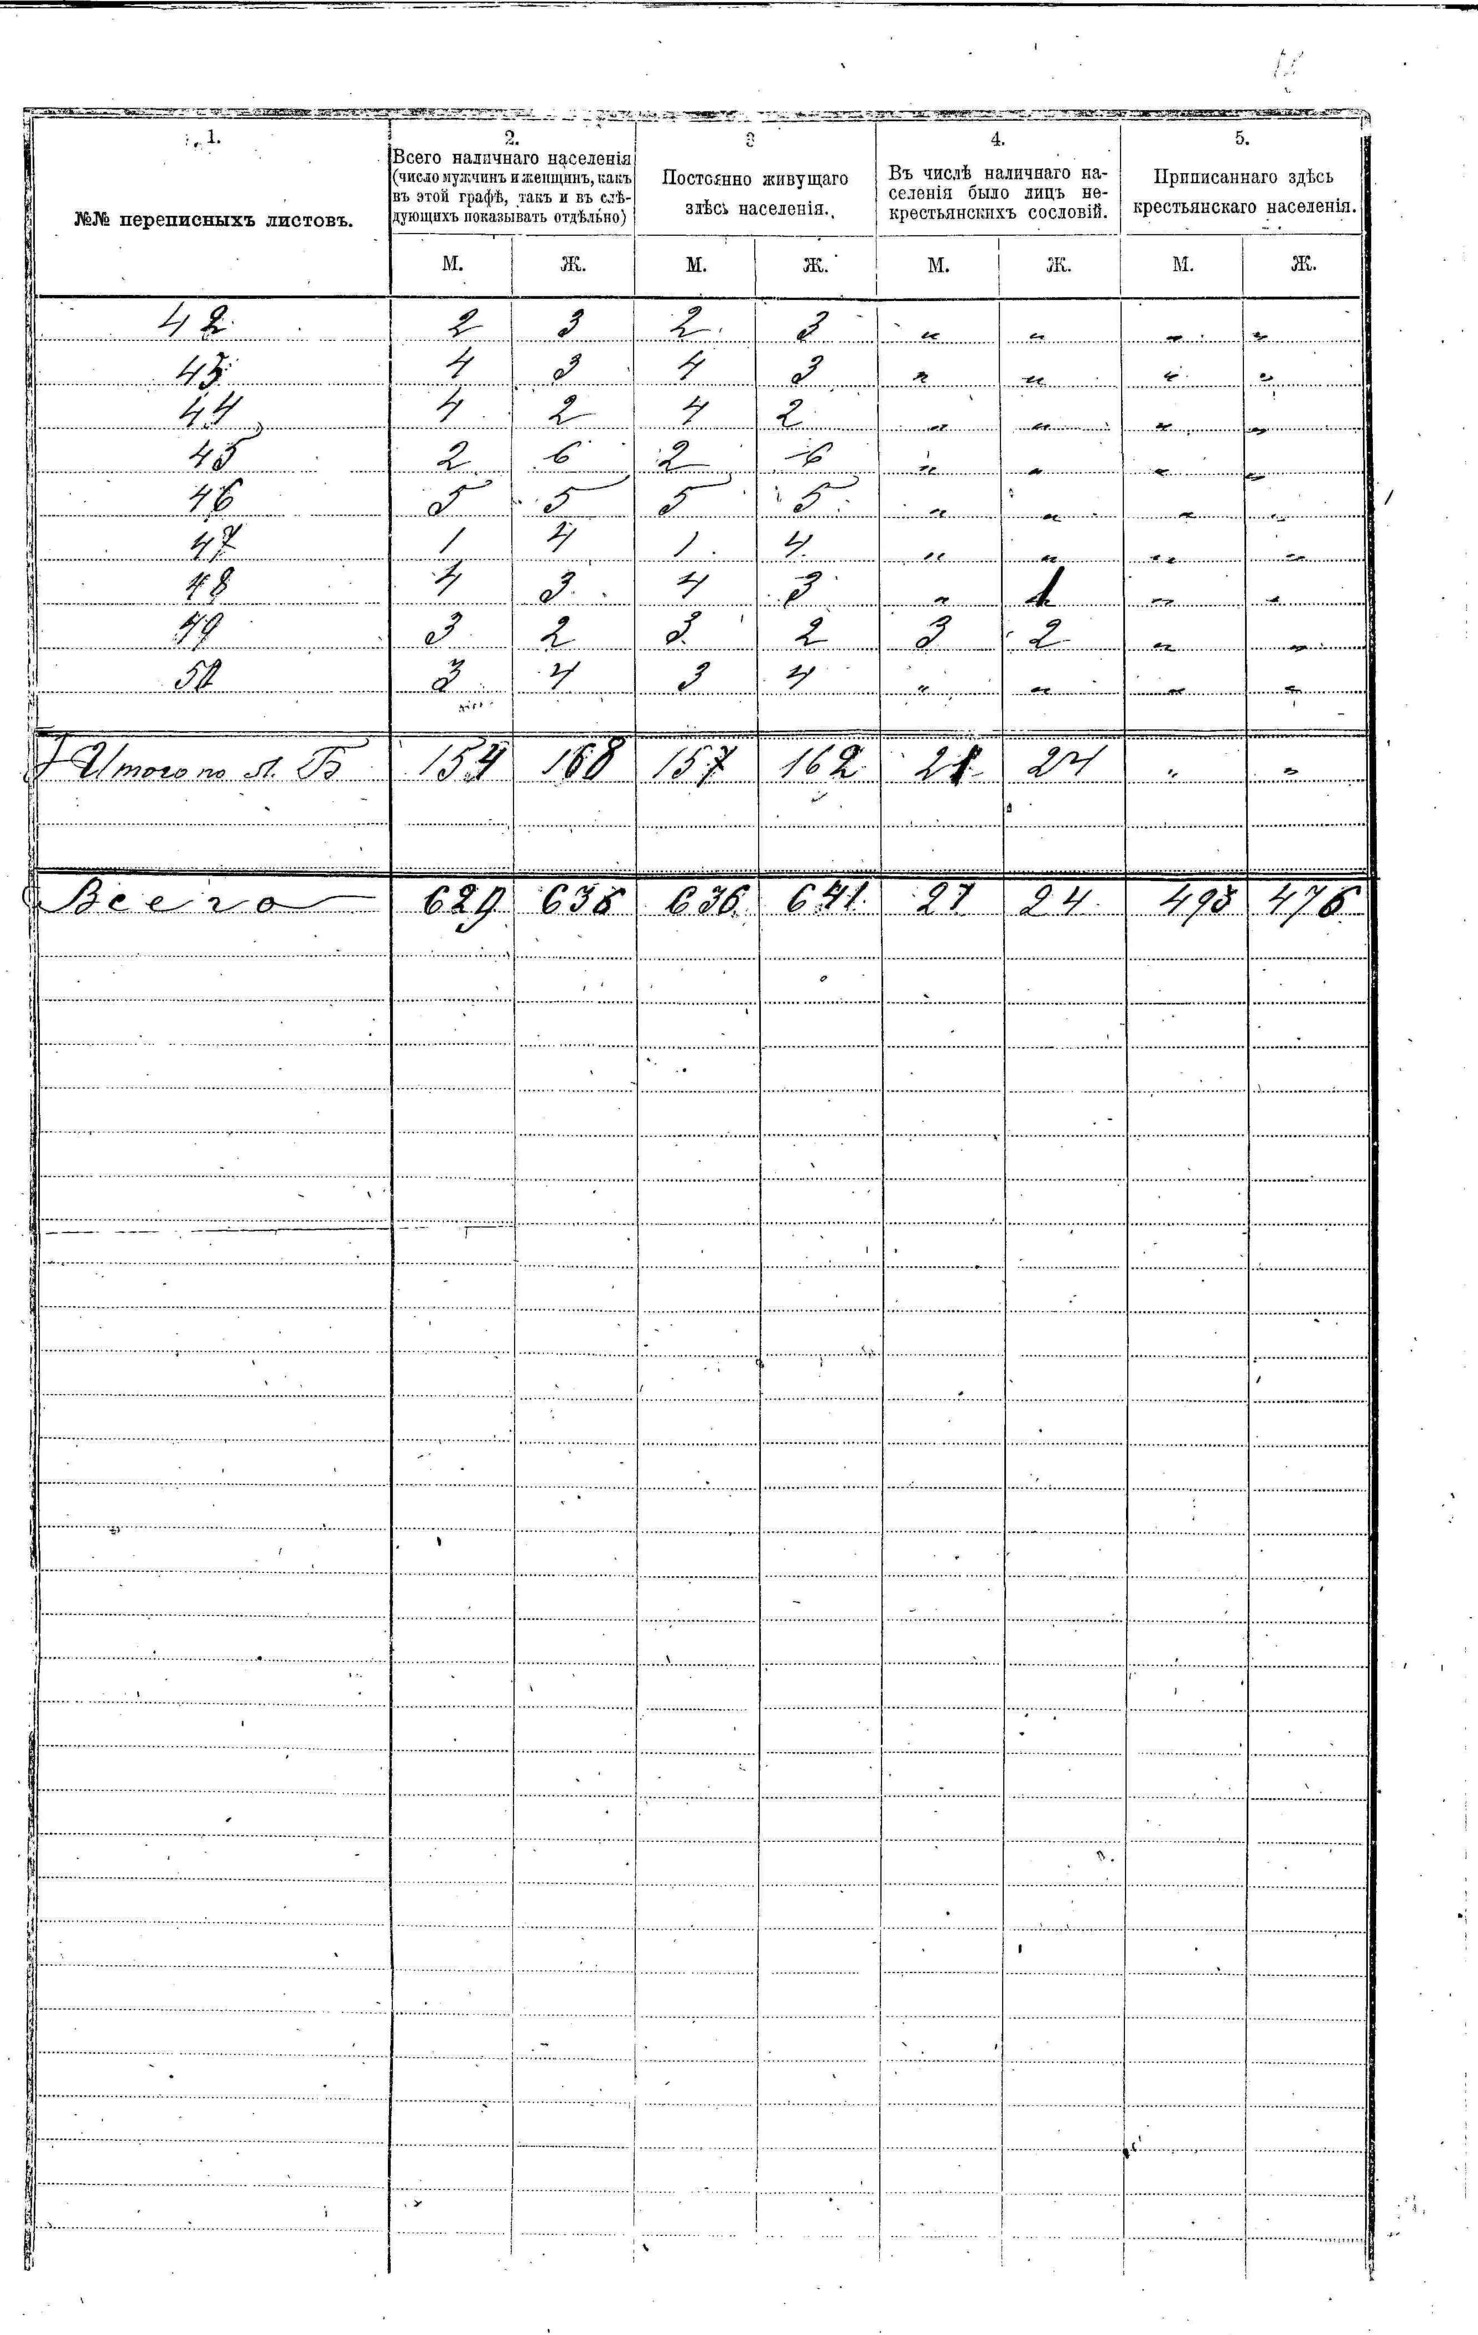 1. 2. 3 4. 5.
№№ переписныхъ листовъ.
Всего наличнаго населенія
(число мужчинъ и женщинъ, какъ
въ этой графѣ, такъ и въ слѣ-
дующихъ показывать отдѣльно)
Постоянно живущаго
здѣсь населенія.
Въ числѣ наличнаго на-
селенія было лицъ не-
крестьянскихъ сословій.
Приписаннаго здѣсь
крестьянскаго населенія.
М. Ж. М. Ж. М. Ж. М. Ж.
42 2 3 2 3 " " " "
43 4 3 4 3 " " " "
44 4 2 4 2 " " " "
45 2 6 2 6 " " " "
46 5 5 5 5 " " " "
47 1 4 1 4 " " " "
48 4 3 4 3 " " "
49 3 2 3 2 3 2 " "
50 3 4 3 4 " " " "
Итого по л. Б 154 168 157 162 21 24 " "
Всего 629 636 641 24 493 476